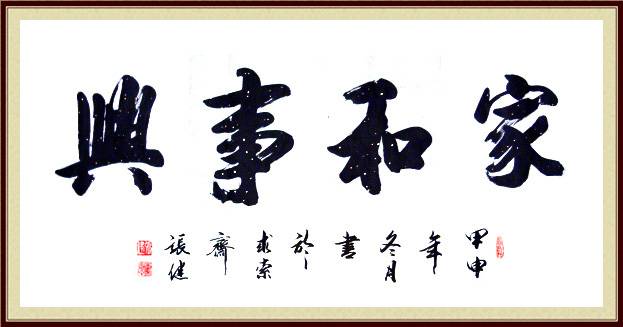 家和事興
甲申年冬月書於求索齋張健